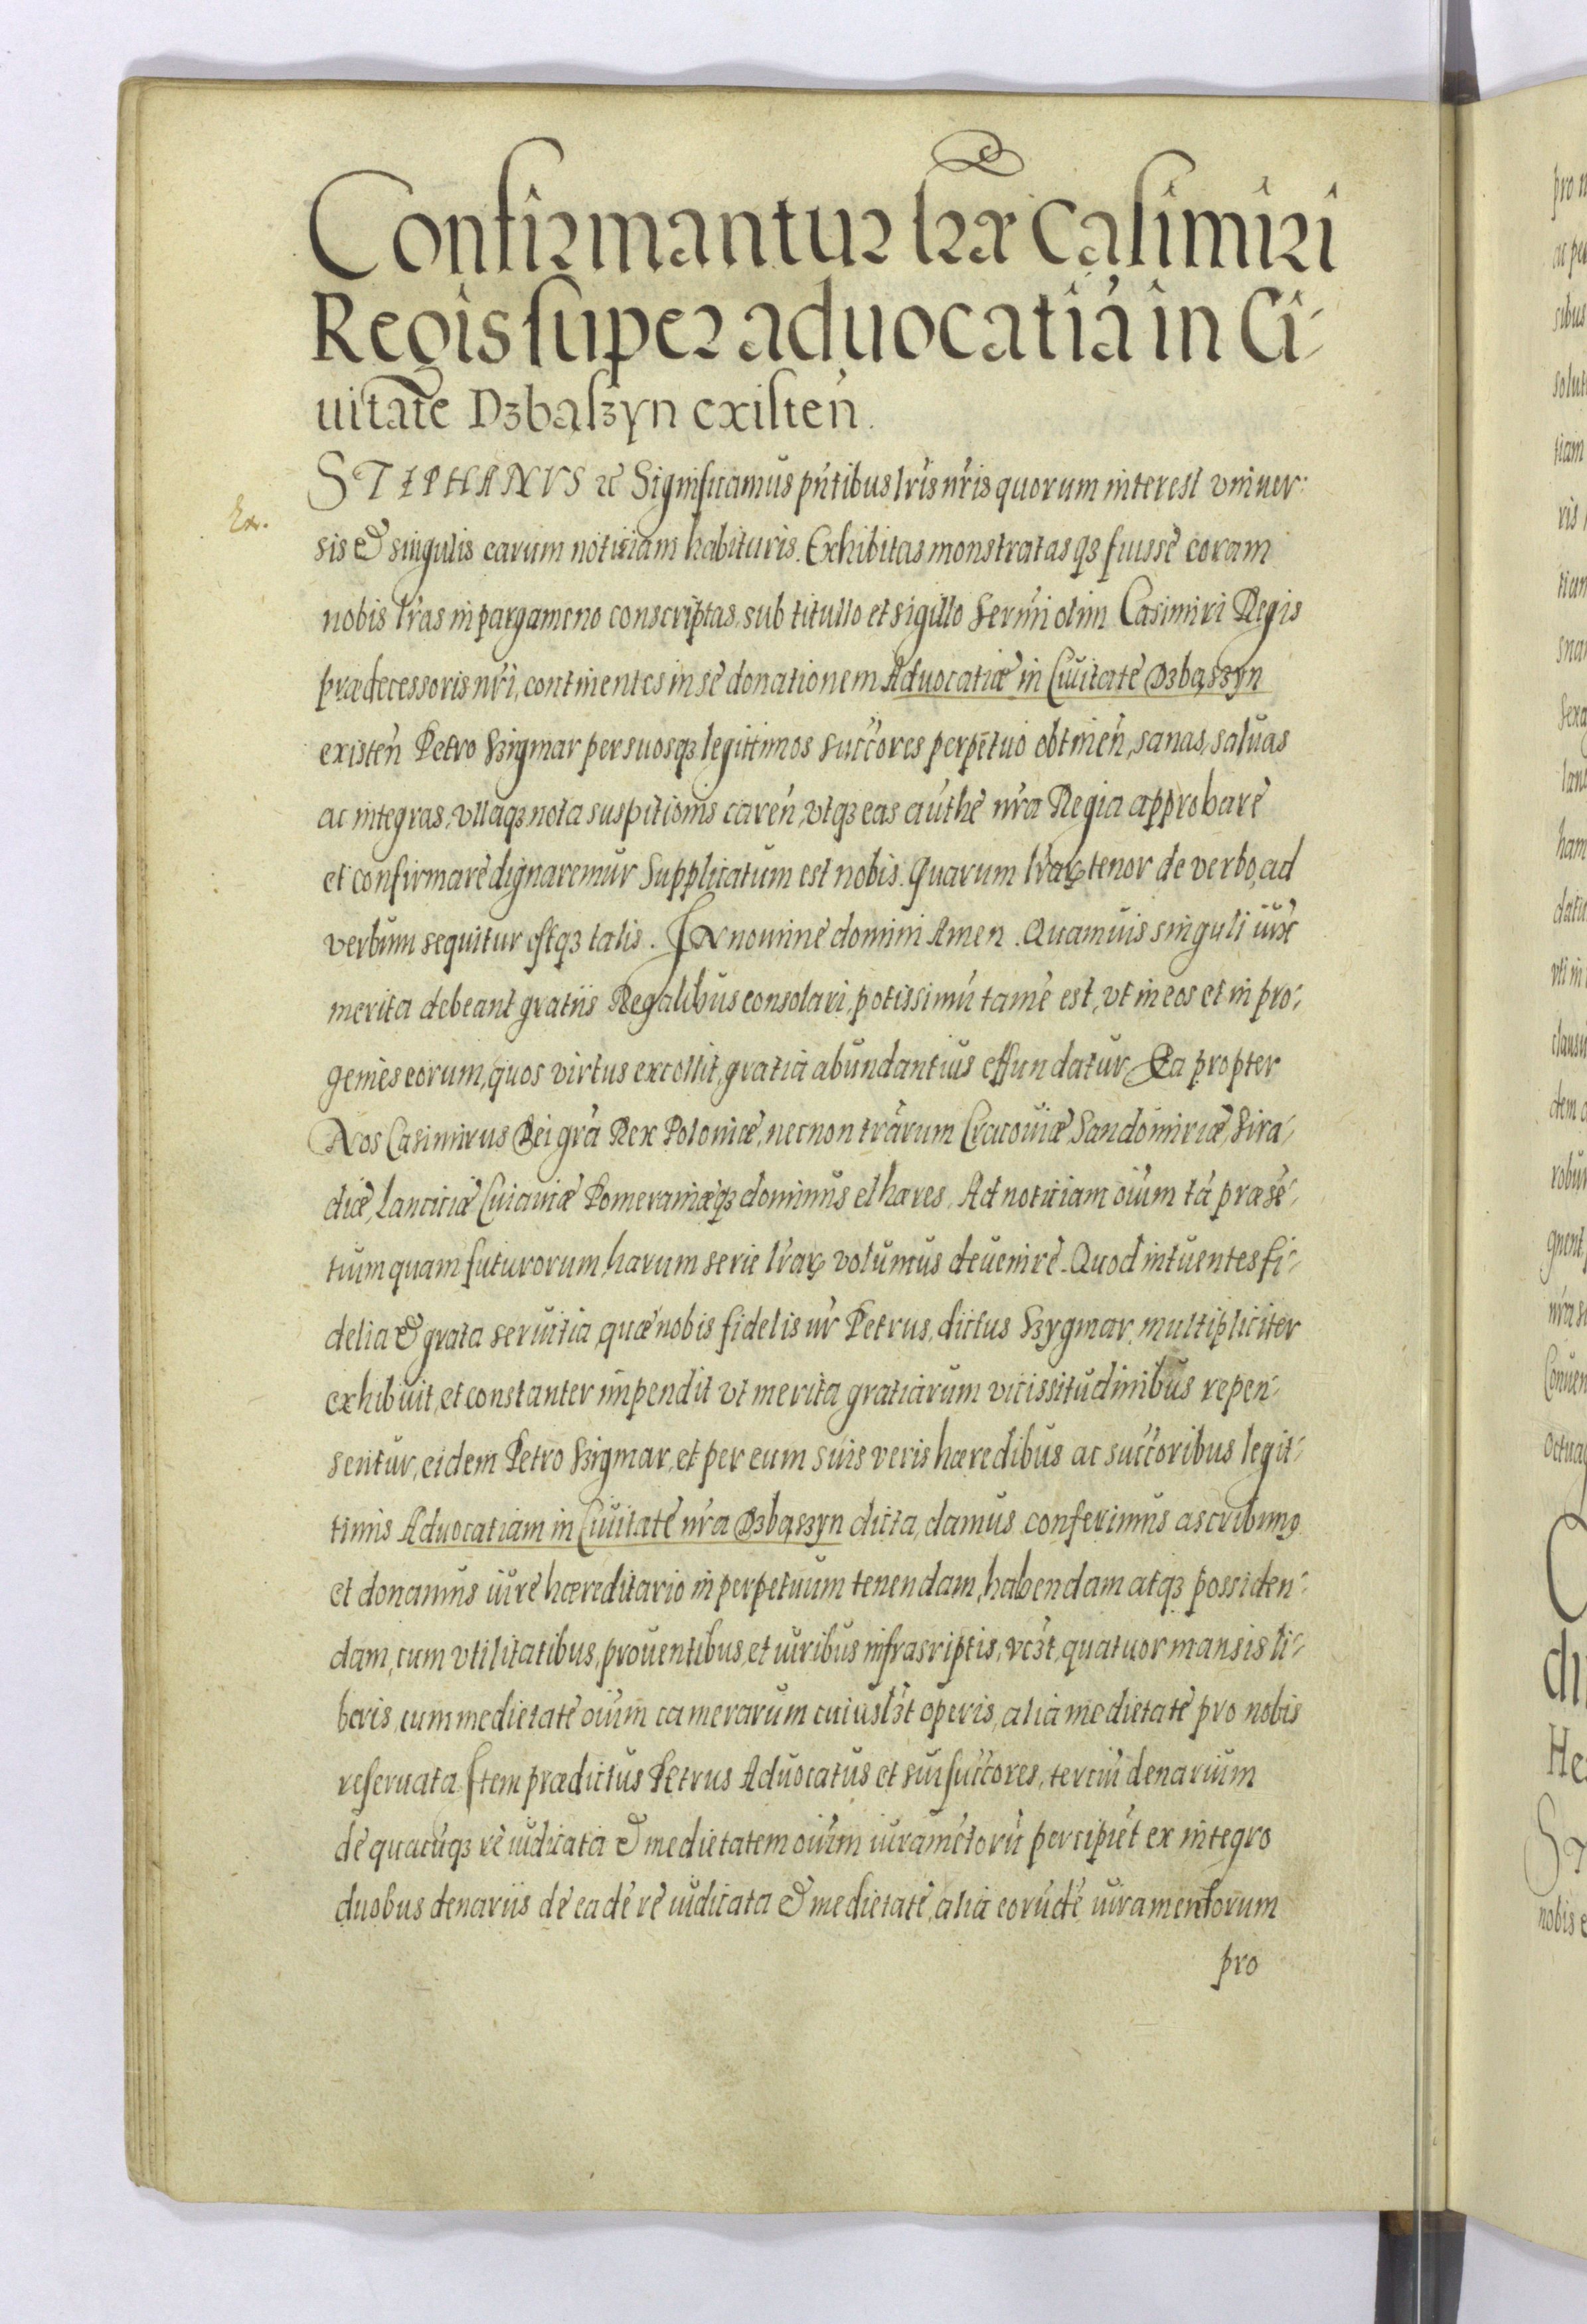 Confirmantur lrae Casimiri
Regis super aduocatiā in Ci-
uitate Dzbąszyn existeń.
STEPHANVS etc Significamus pñtibus lris nris quorum interest vniuer-
Ex.
sis & singulis earum notitiam habituris. Exhibitas monstratasqȝ fuisse coram
nobis lras in pargameno conscriptas, sub titullo et sigillo Sermi olim Casimiri Regis
prædecessoris nri, continentes in se donationem Aduocatiæ in Ciuitate Dzbąszyn
existeń Petro Szigmar per suosqȝ legittimos succores perpetuo obtineń, sanas, saluas
ac integras, vllaqȝ nota suspitionis careń, vtqȝ eas authe nra Regia approbare
et confirmare dignaremur Supplicatum est nobis. Quarum lrarꝝ tenor de verbo, ad
verbum sequitur estqȝ talis. IN nomine domini Amen. Quamuis singuli iux
merita debeant gratiis Regalibus consolari, potissimū tamē est, vt in eos et in pro-
genies eorum, quos virtus excollit, gratia abundantius effundatur, Ea propter
Nos Casimirus Dei gra Rex Poloniæ, necnon trarum Cracouiæ, Sandomiriæ, Sira-
diæ, Lanciciæ Cuiauiæ Pomeraniæqȝ dominus et hæres. Ad notitiam oium tā præsē-
tium quam futurorum, harum serie lrarꝝ volumus deuenire. Quod intuentes fi-
delia & grata seruitia, quæ nobis fidelis nr Petrus, dictus Szygmar, multipliciter
exhibuit, et constanter impendit vt merita gratiarum vicissitudinibus repen-
sentur, eidem Petro Szigmar, et per eum suis veris hæredibus ac succoribus legit-
timis Aduocatiam in Ciuitate nra Dzbąszyn dicta, damus conferimus ascribimꝰ
et donamus iure hæreditario in perpetuum tenendam, habendam atqȝ possiden-
dam, cum vtilitatibus, prouentibus, et iuribus infrasriptis, vcȝt, quatuor mansis li-
beris, cum medietate oium camerarum cuiuslȝt operis, alia medietate pro nobis
reseruata. Item prædictus Petrus Aduocatus et sui succores, terciū denarium
de quacūqȝ re iudicata & medietatem oium iuramētorū percipiēt ex integro
duobus denariis de eadē re iudicata & medietate, alia eorūdē iuramentorum
pro